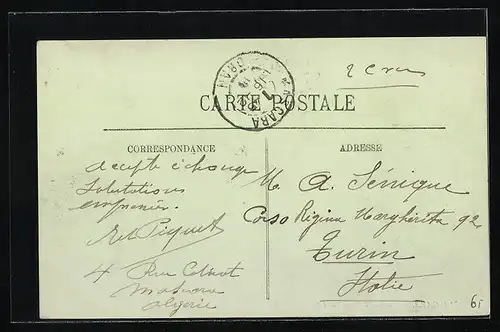 2 Cvues
MASCARA
ORAN
CARTE POSTALE
CORRESPONDANCE
ADRESSE
accepte échange
Salutations
empressées
Piquet
4 Rue
Mascara
Algérie
M. A. Sénique
Corso Regina Margherita 92
Turin
Italie
6.